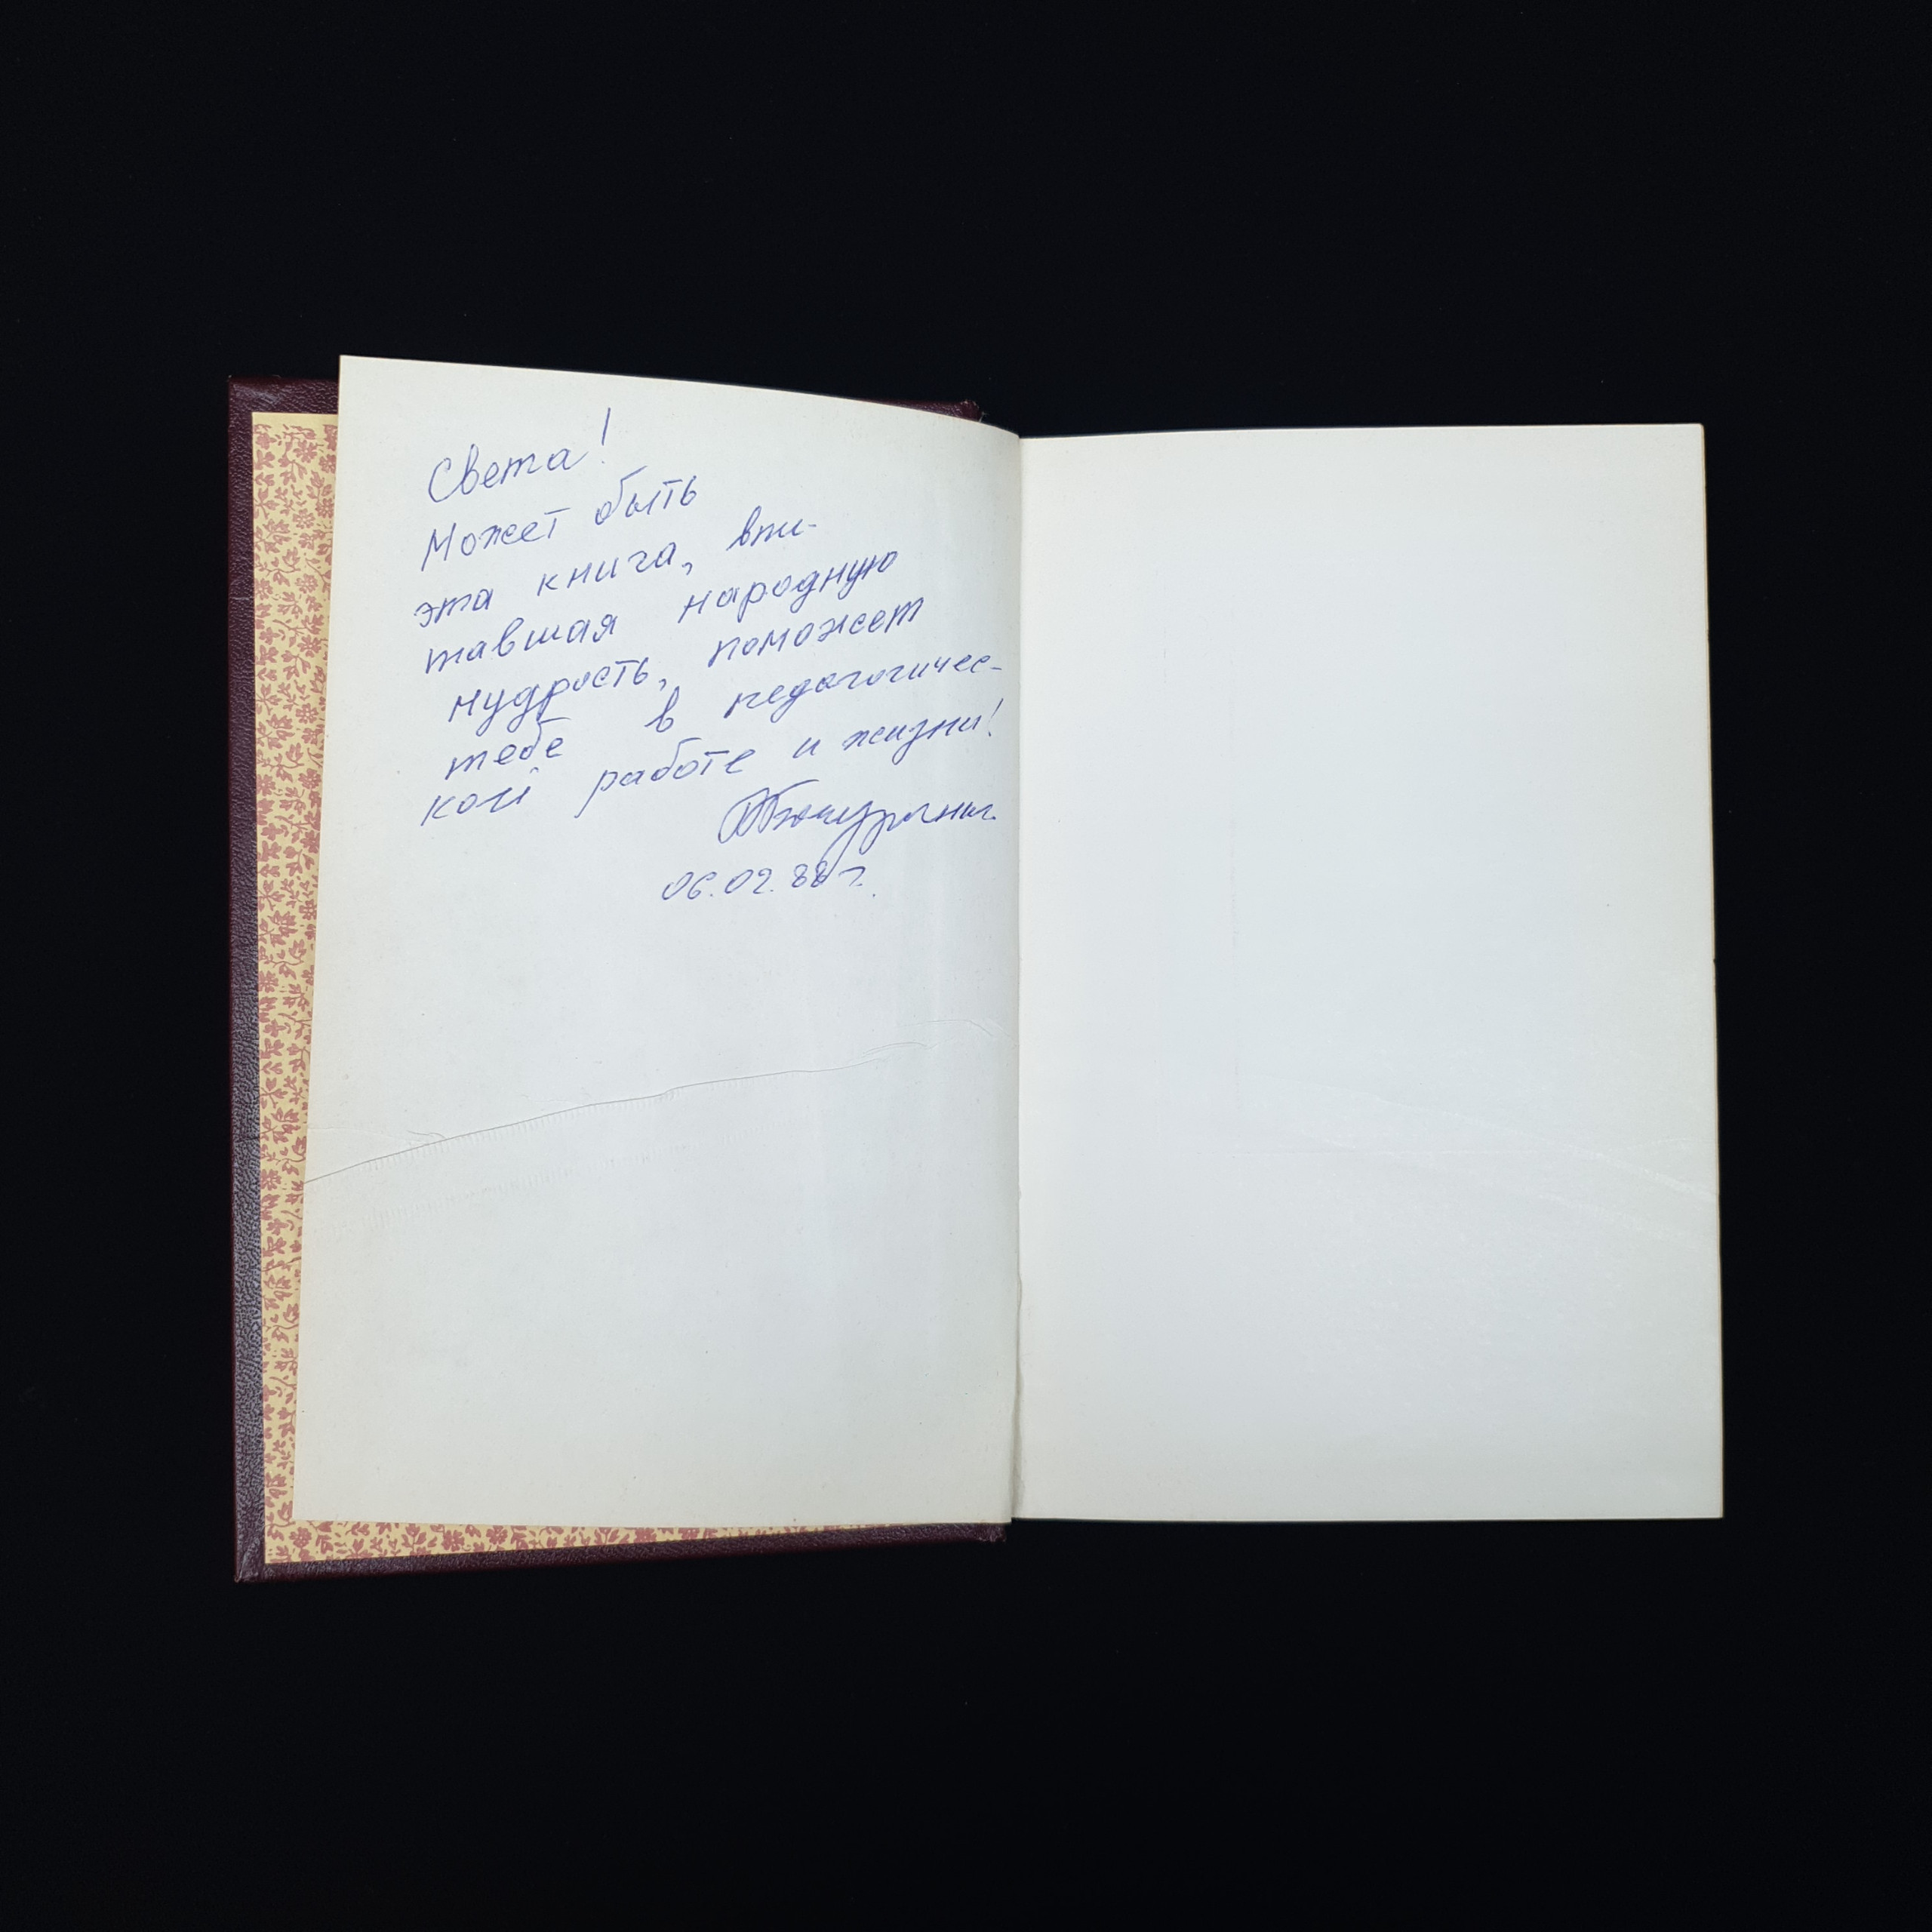 Света!
Может быть
эта книга, впи-
тавшая народную
мудрость, поможет
тебе в педагогичес-
кой работе и жизни!
06.02.88г.